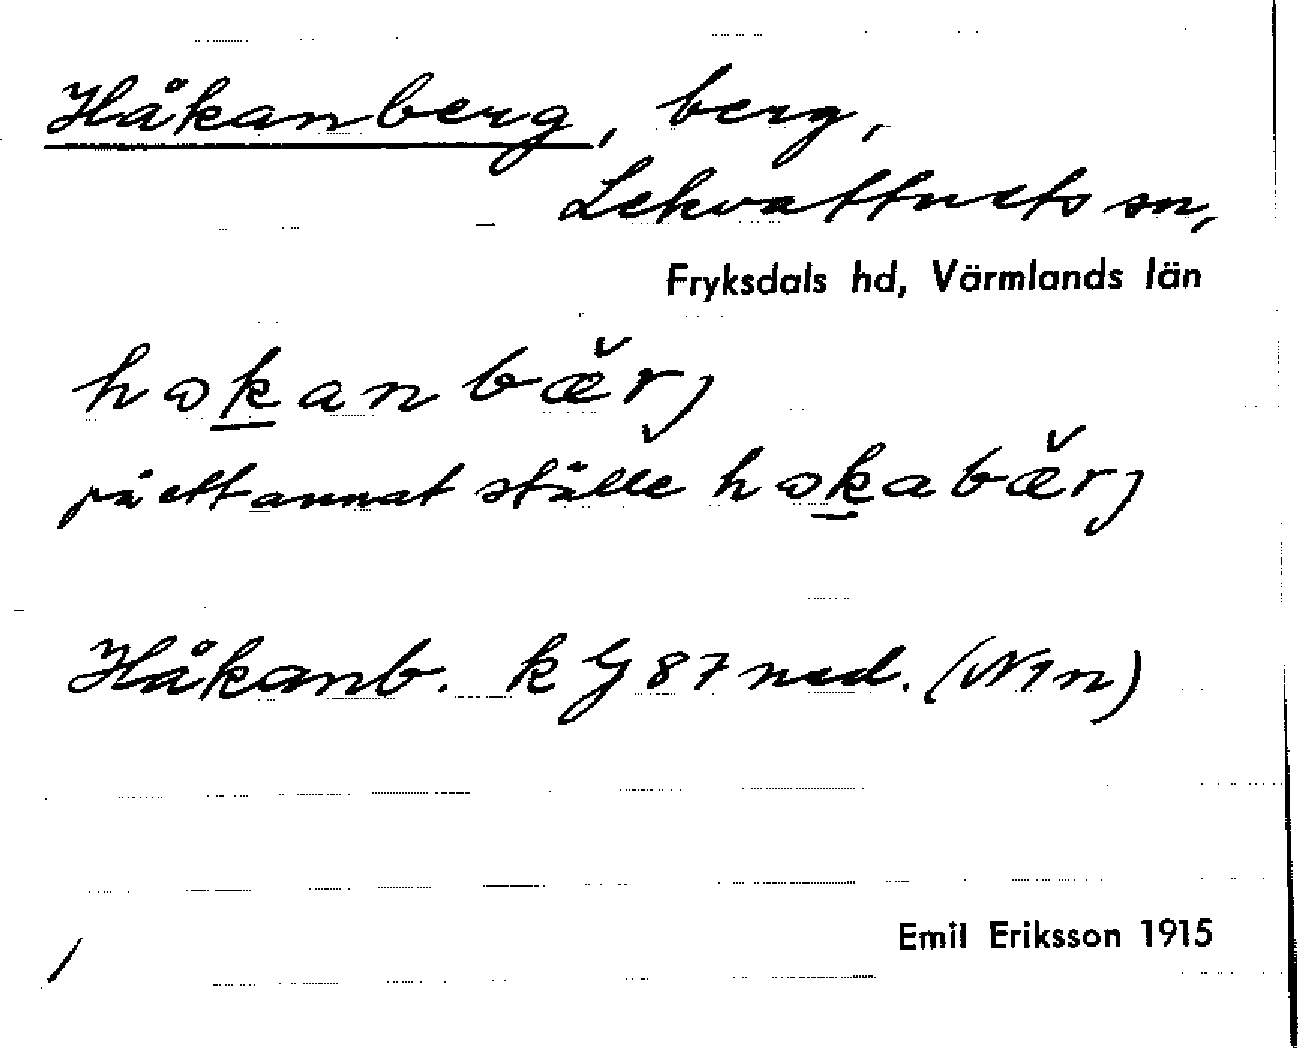 Håkanberg, berg,
Lekvattnets sn,
Fryksdals hd, Värmlands län
hωkanbæ̌rj
på ett annat ställe hωkabæ̌rj
Håkanb. k G 87 ned. (N1n)
Emil Eriksson 1915